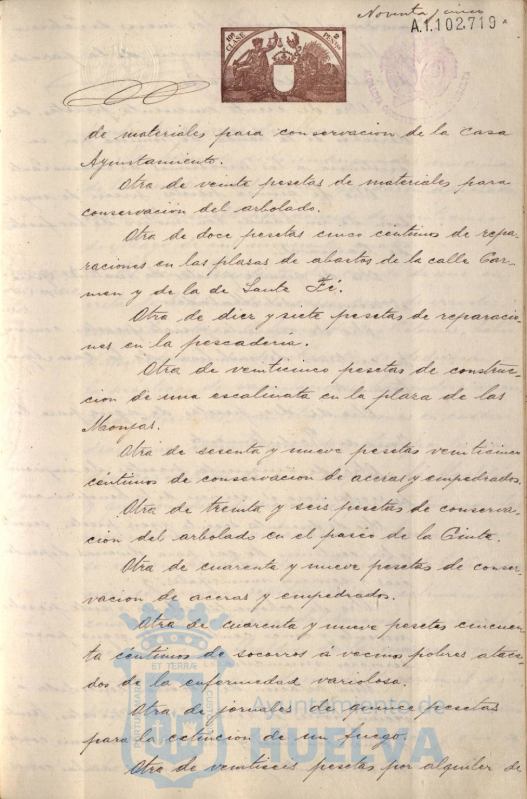 Noventa y cinco
A.1.102.719
10ª CLASE
2 PESETAS
de materiales para conservacion de la Casa
Ayuntamiento.
Otra de veinte pesetas de materiales para
conservacion del arbolado.
Otra de doce pesetas cinco céntimos de repa-
raciones en las plazas de abastos de la calle Car-
men y de la de Santa Fé.
Otra de diez y siete pesetas de reparacio-
nes en la pescadería.
Otra de veinticinco pesetas de construc-
cion de una escalinata en la plaza de las
Monjas.
Otra de sesenta y nueve pesetas veinticinco
céntimos de conservacion de aceras y empedrados.
Otra de treinta y seis pesetas de conserva-
cion del arbolado en el paseo de la Cinta.
Otra de cuarenta y nueve pesetas de conser-
vacion de aceras y empedrados.
Otra de cuarenta y nueve pesetas cincuen-
ta céntimos de socorros á vecinos pobres ataca-
dos de la enfermedad variolosa.
Otra de jornales de quince pesetas
para la estincion de un fuego.
Otra de veintiseis pesetas por alquiler de
PORTUS MARIS ET TERRÆ CUSTODIA
Ayuntamiento de
HUELVA